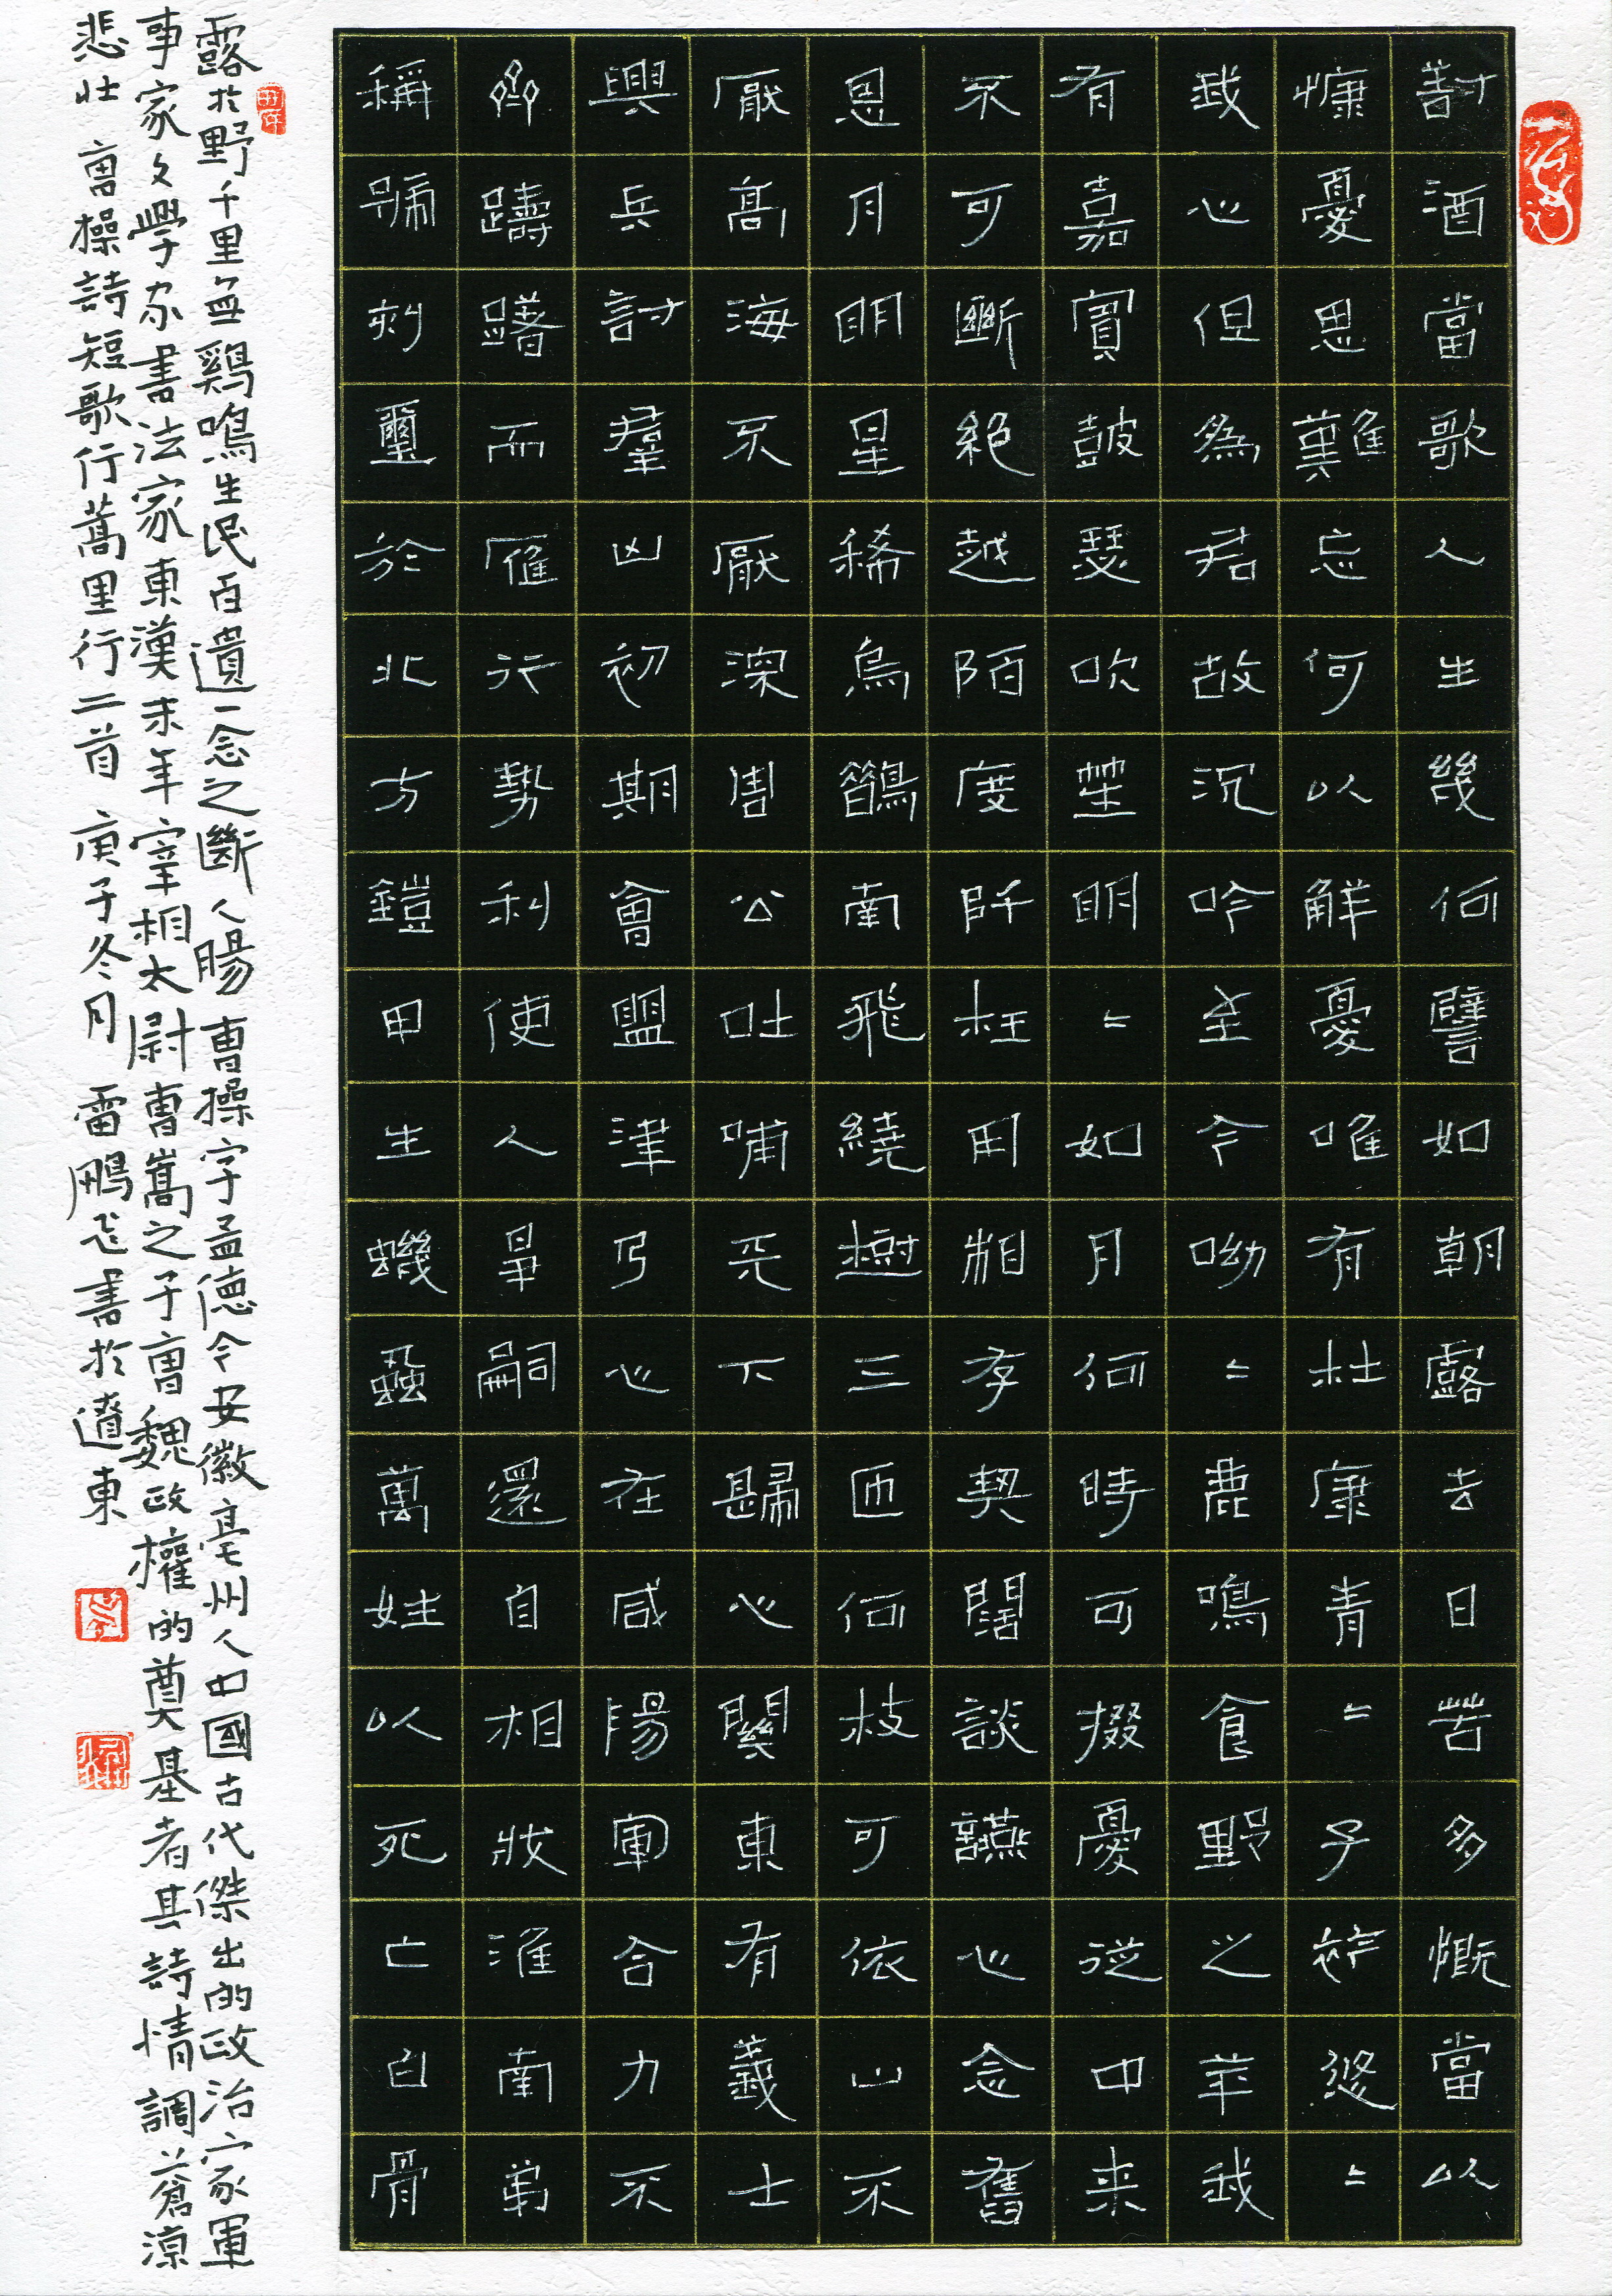 對酒當歌人生幾何譬如朝露去日苦多慨當以
慷憂思難忘何以解憂唯有杜康青〻子衿悠〻
我心但為君故沉吟至今呦〻鹿鳴食野之苹我
有嘉賓鼓瑟吹笙明〻如月何時可掇憂從中来
不可斷絕越陌度阡枉用相存契闊談讌心念舊
恩月明星稀烏鵲南飛繞樹三匝何枝可依山不
厭高海不厭深周公吐哺天下歸心關東有義士
興兵討羣凶初期會盟津乃心在咸陽軍合力不
齊躊躇而雁行勢利使人爭嗣還自相戕淮南弟
稱號刻璽於北方鎧甲生蟣蝨萬姓以死亡白骨
露於野千里無鷄鳴生民百遺一念之斷人腸 曹操字孟德今安徽亳州人中國古代傑出的政治家軍
事家文學家書法家東漢末年宰相太尉曹嵩之子曹魏政權的奠基者其詩情調蒼涼
悲壯 曹操詩短歌行蒿里行二首 庚子冬月 雷鵬飛書於遼東